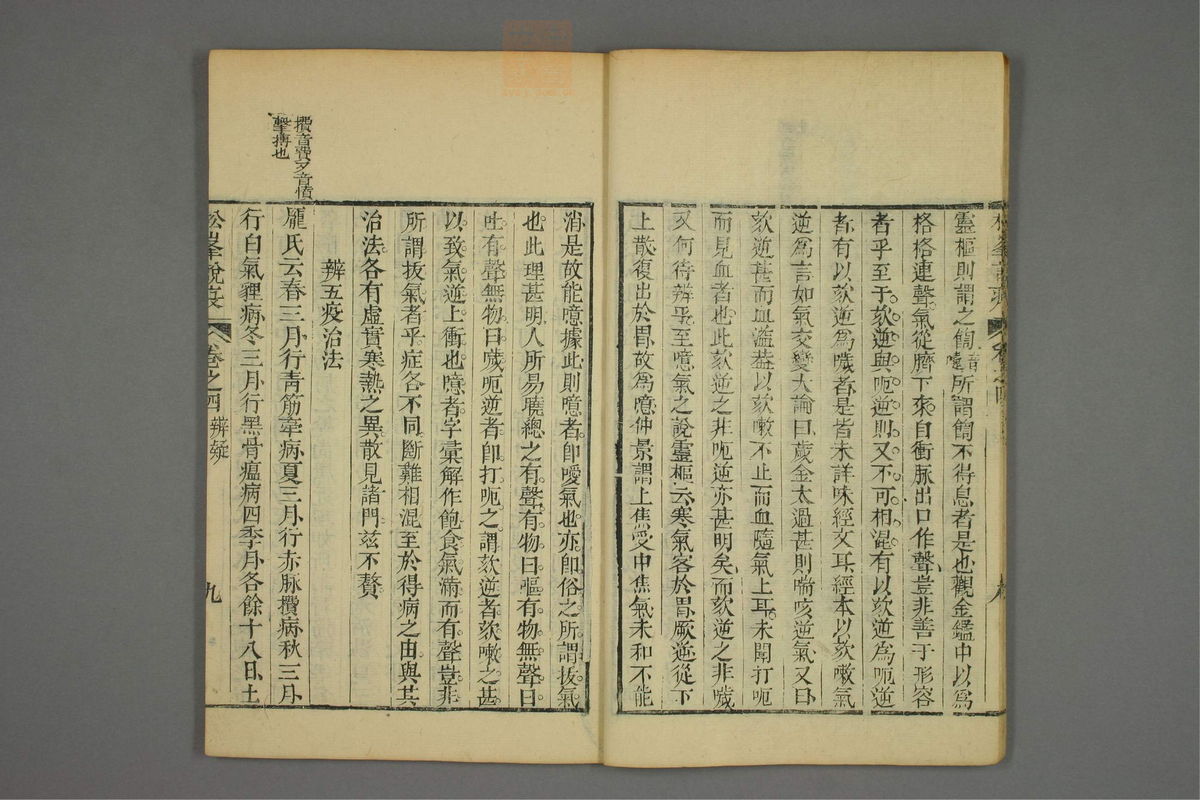 靈樞則謂之䭇音噎所謂䭇不得息者是也觀金鑑中以爲
格格連聲氣從臍下來自衝脉出口作聲豈非善于形容
者乎至于欬逆與呃逆則又不可相混有以欬逆爲呃逆
者有以欬逆爲噦者是皆未詳味經文耳經本以欬嗽氣
逆爲言如氣交變大論曰歲金太過甚則喘咳逆氣又曰
欬逆甚而血溢蓋以欬嗽不止而血隨氣上耳未聞打呃
而見血者也此欬逆之非呃逆亦甚明矣而欬逆之非噦
又何待辨乎至噫氣之說靈樞云寒氣客於胃厥逆從下
上散復出於胃故爲噫仲景謂上焦受中焦氣未和不能
消是故能噫據此則噫者卽噯氣也亦卽俗之所謂抜氣
也此理甚明人所易曉總之有聲有物曰嘔有物無聲曰
吐有聲無物曰噦呃逆者卽打呃之謂欬逆者欬嗽之甚
以致氣逆上衝也噫者字彙解作飽食氣滿而有聲豈非
所謂抜氣者乎症各不同斷難相混至於得病之由與其
治法各有虛實寒熱之異散見諸門茲不贅
辨五疫治法
攢音費又音憤
擊搏也
龐氏云春三月行靑筋牽病夏三月行赤脉攢病秋三月
行白氣貍病冬三月行黑骨瘟病四季月各餘十八日土
松峯說疫
卷之四
辨疑
九